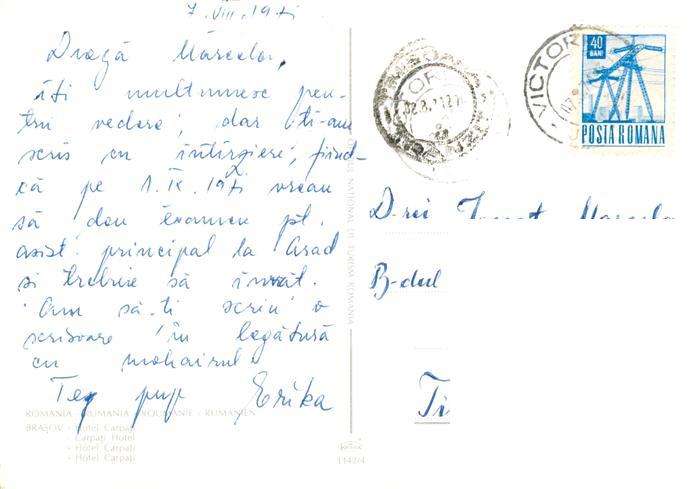 7.VIII.1971
Dragă Marcela,
îți mulțumesc pen-
tru vedere, dar ți-am
scris cu întîrziere, fiind-
că pe 1.IX.1971 vreau
să dau examen pt.
asist. principal la Arad
și trebuie să învăț.
Am să-ți scriu o
scrisoare în legătură
cu mohairul
Te pup Erika
ROMANIA - RUMANIA - ROUMANIE - RUMÄNIEN
BRAȘOV - Hotel Carpați
- Carpați Hotel
- Hotel Carpați
- Hotel Carpați
1149/4
40
BANI
POSTA ROMANA
VICTOR
D-rei
B-dul
Ti